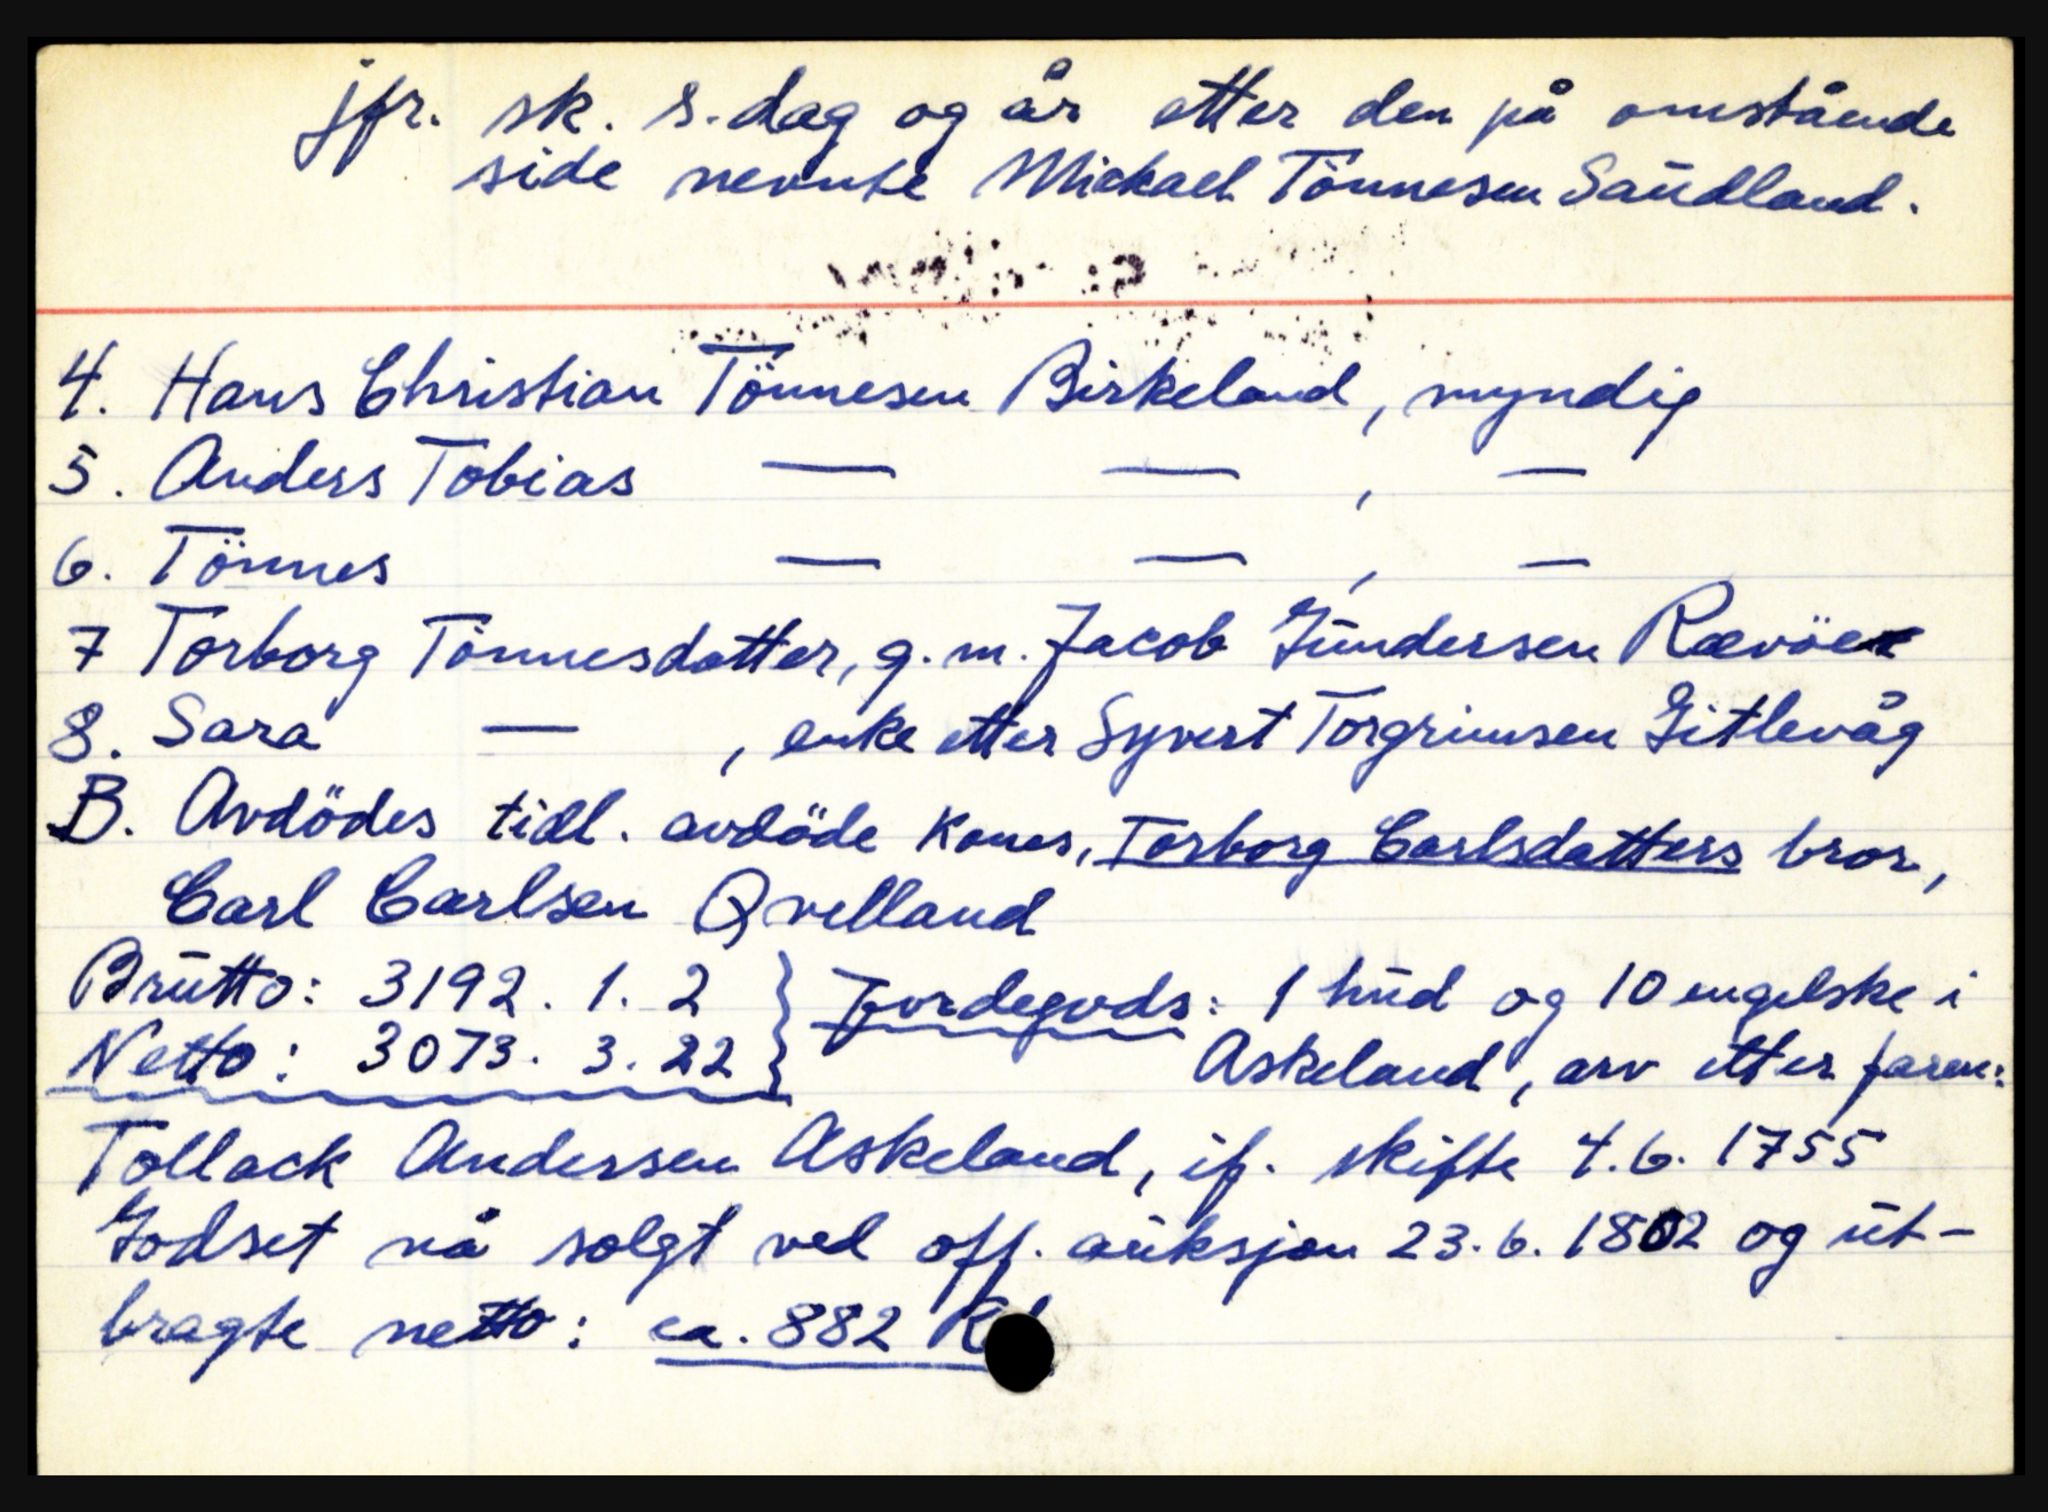 jfr. sk. s. dag og år etter den på omstående
side nevnte Mickael Tönnesen Saudland.
4. Hans Christian Tönnesen Birkeland, myndig
5. Anders Tobias — — , —
6. Tönnes — — , —
7 Torborg Tönnesdatter, g. m. Jacob Gundersen Rævöe
8. Sara — , enke etter Syvert Torgrimsen Gitlevåg
B. Avdödes tidl. avdöde kones, Torborg Carlsdatters bror,
Carl Carlsen Qvelland
Brutto: 3192. 1. 2 } Jordegods: 1 hud og 10 engelske i
Netto: 3073. 3. 22 } Askeland, arv etter faren:
Tollack Andersen Askeland, if. skifte 4.6. 1755
Godset nå solgt ved off. auksjon 23. 6. 1802 og ut-
bragte netto: ca. 882